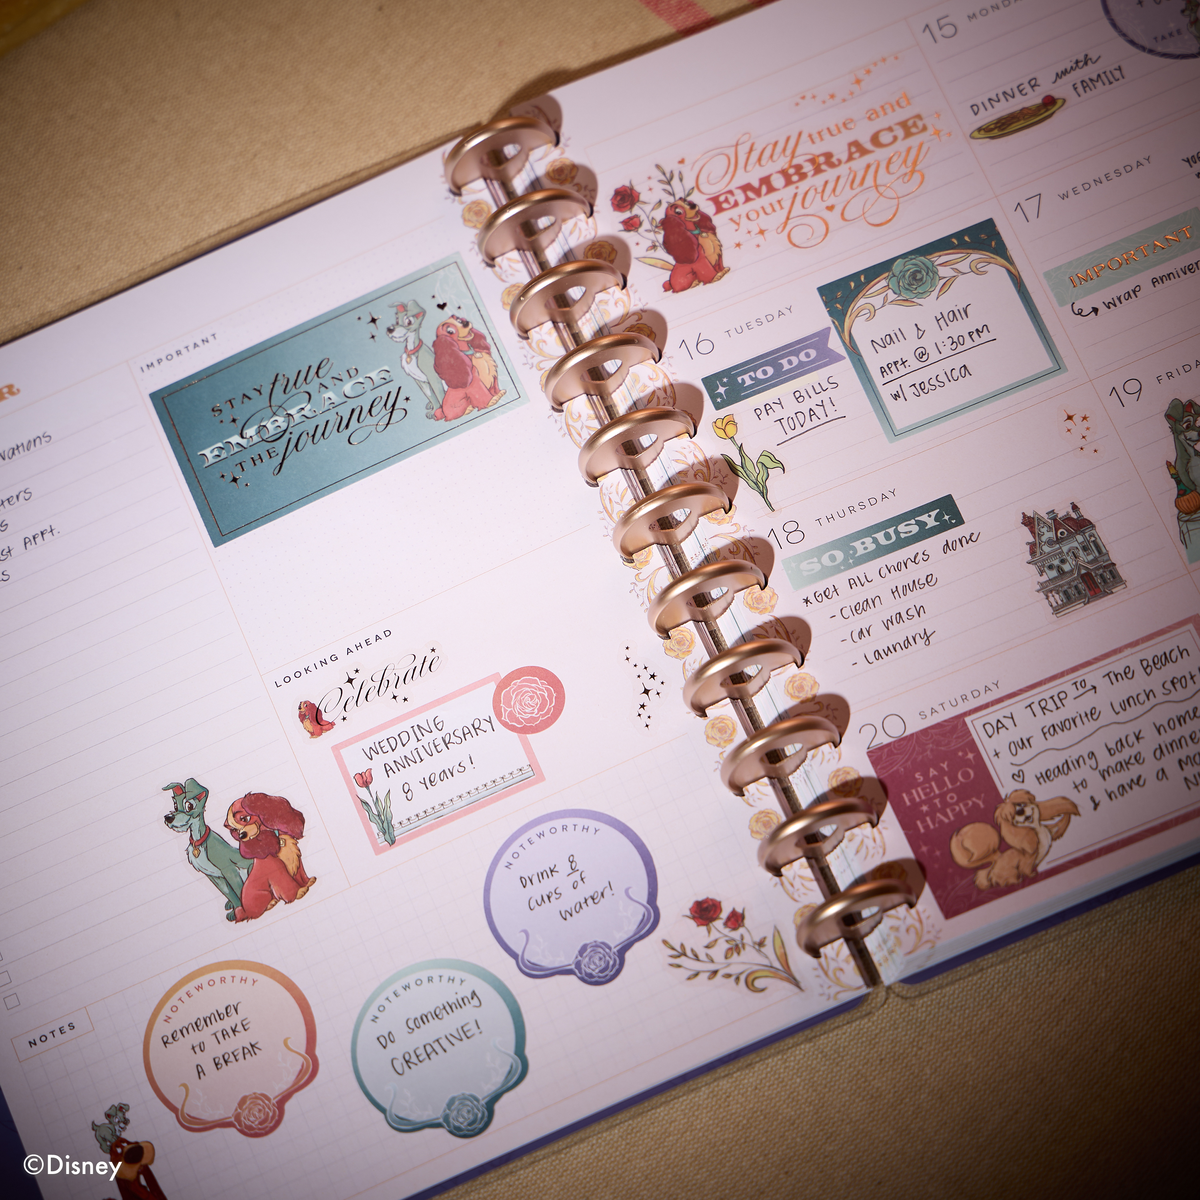 R
vations
ters
s
st Appt.
s
IMPORTANT
STAY true
AND
EMBRACE
THE journey
LOOKING AHEAD
Celebrate
WEDDING
ANNIVERSARY
8 years!
NOTEWORTHY
Drink 8
cups of
water!
NOTES
NOTEWORTHY
Remember
to TAKE
A BREAK
NOTEWORTHY
DO Something
CREATIVE!
©Disney
Stay true and
EMBRACE
your journey
15 MONDA
TAKE
DINNER with
FAMILY
16 TUESDAY
TO DO
PAY BILLS
TODAY!
Nail & Hair
APPt. @ 1:30PM
w/ Jessica
17 WEDNESDAY
IMPORTANT
Wrap Anniver
18 THURSDAY
SO BUSY
*Get All Chores done
- Clean House
- Car wash
- Laundry
19 FRIDA
20 SATURDAY
SAY
HELLO
TO
HAPPY
DAY TRIP TO → THE Beach
+ our Favorite Lunch Spot
♡ Heading back home
to make dinne
& have a Mo